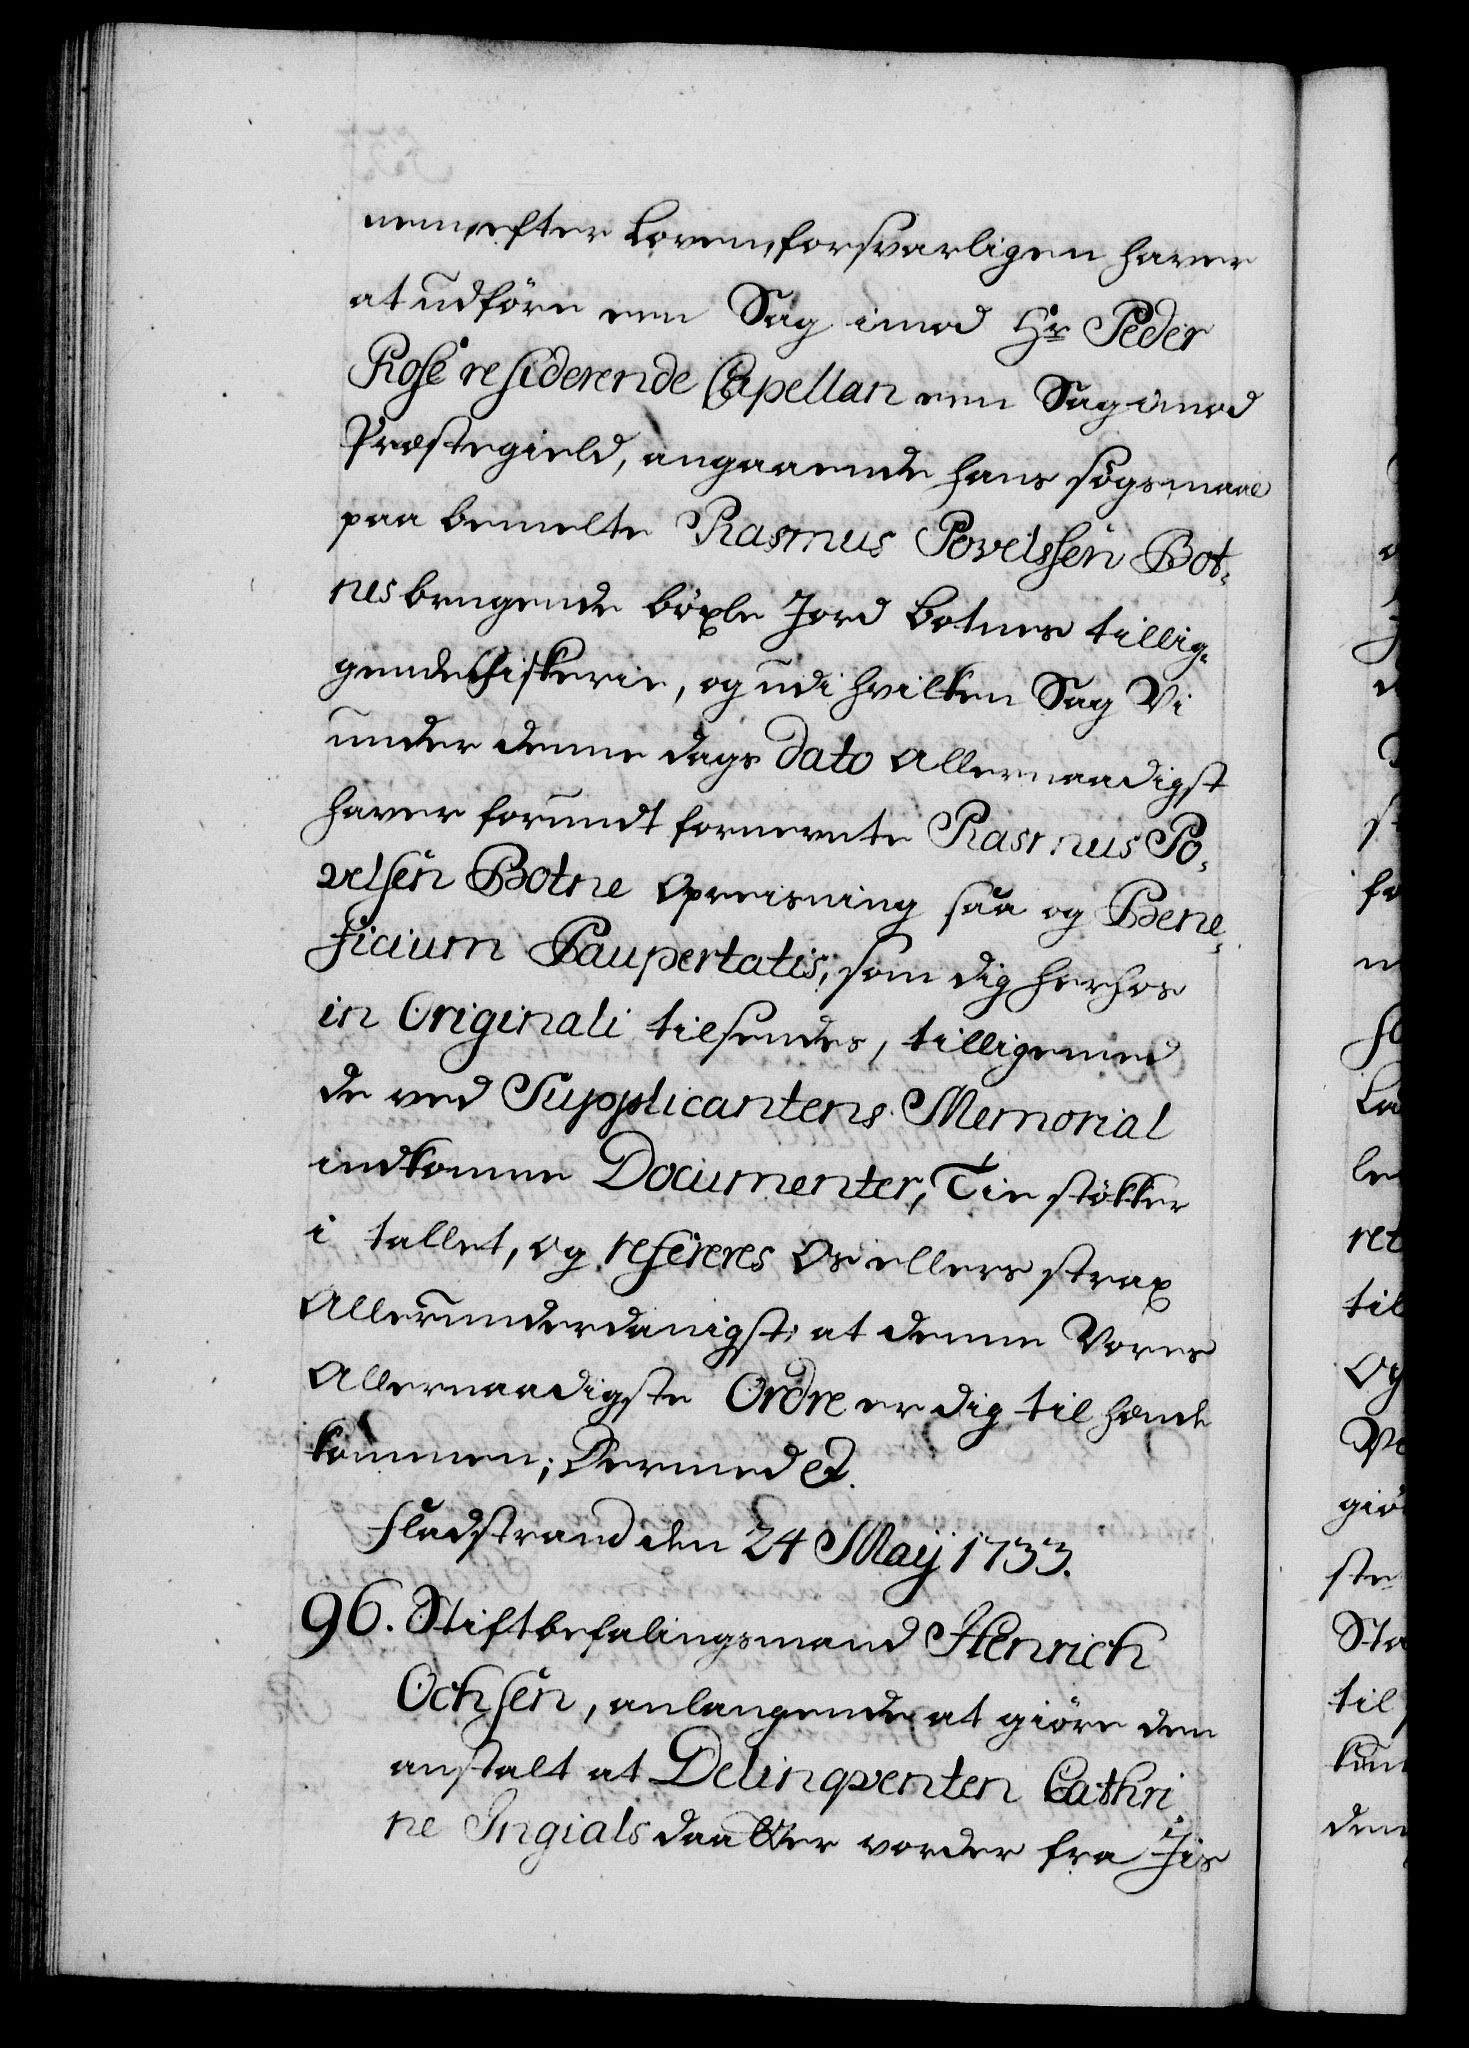 nem, efter Loven, forsvarligen haver
at udføre een Sag imod Hr Peder
Rose residerende Capellan een Sag imod
Præstegield, angaaende hans søgsmaal
paa bemelte Rasmus Povelssen Bot-
nes brugende böxle Jord Botnes tillig-
gende Fiskerie, og udi hvilken Sag Vi
under denne dags dato Allernaadigst
haver forundt fornevnte Rasmus Po-
velsen Botne Opreisning saa og Bene-
ficium Paupertatis, som dig herhos
in Originali tilsendes, tilligemed
de ved Supplicantens Memorial
indkomne Documenter, Tie støkker
i tallet, og refereres Os ellers strax
Allerunderdanigst, at denne Vores
Allernaadigste Ordre er dig til hænde
kommen; Dermed &.
Fladstrand den 24 Maij 1733.
96. Stiftbefalingsmand Henrich
Ochsen, anlangende at giøre den
anstalt at Delinqventen Cathri-
ne Ingials daatter vorder fra Iis